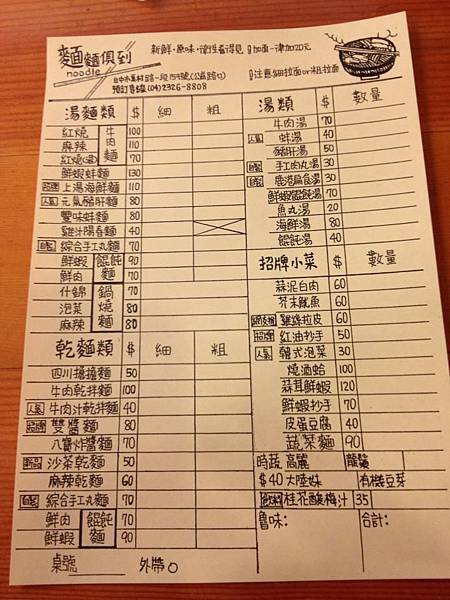 麵麵俱到
noodle
新鮮・原味・
加麵一律加20元
台中市
預訂專線(04)2326-8808
注意細拉麵or粗拉麵
湯麵類 $ 細 粗
紅燒牛肉麵 100
麻辣牛肉麵 110
紅燒牛肉麵 70
鮮蝦蚌麵 130
招牌 上湯海鮮麵 110
人氣 元氣豬肝麵 80
雙味蚌麵 80
雞汁陽春麵 40
自製 綜合手工丸麵 70
鮮蝦餛飩麵 90
鮮肉餛飩麵 70
什錦鍋燒麵 70
泡菜鍋燒麵 80
麻辣鍋燒麵 80
乾麵類 $ 細 粗
四川擔擔麵 50
牛肉乾拌麵 100
人氣 牛肉汁乾拌麵 40
招牌 雙醬麵 80
八寶炸醬麵 70
新品 沙茶乾麵 50
麻辣乾麵 60
自製 綜合手工丸麵 70
鮮肉餛飩麵 70
鮮蝦餛飩麵 90
桌號 外帶
湯類 $ 數量
牛肉湯 70
人氣 蚌湯 40
豬肝湯 50
自製 手工肉丸湯 30
自製 鹿港扁食湯 30
鮮蝦餛飩湯 70
魚丸湯 20
海鮮湯 80
餛飩湯 40
招牌小菜 $ 數量
蒜泥白肉 60
芥末魷魚 60
雞絲拉皮 60
招牌 紅油抄手 50
人氣 韓式泡菜 30
燒酒蛤 100
蒜茸鮮蝦 120
鮮蝦抄手 70
皮蛋豆腐 40
蔬菜麵 90
時蔬 高麗 龍鬚
$40 大陸妹 有機豆芽
飲料 桂花酸梅汁 35
魯味: 合計: